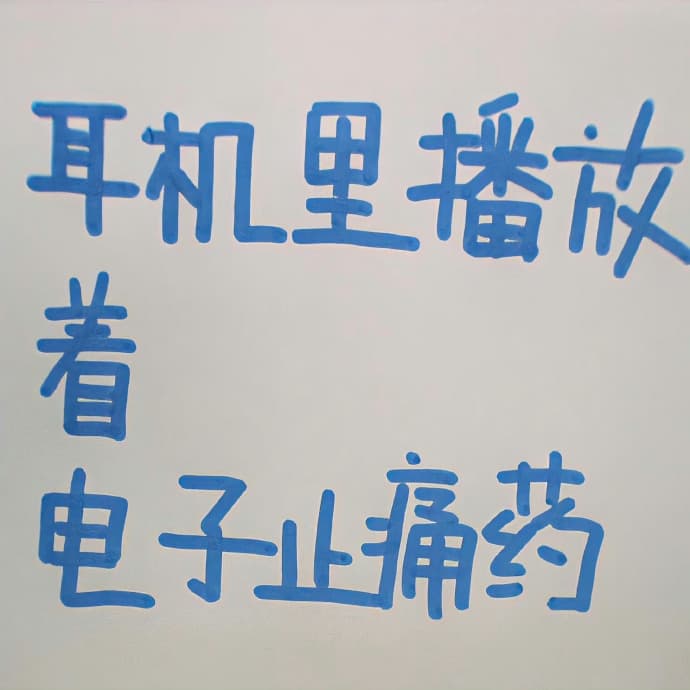 耳机里播放
着
电子止痛药